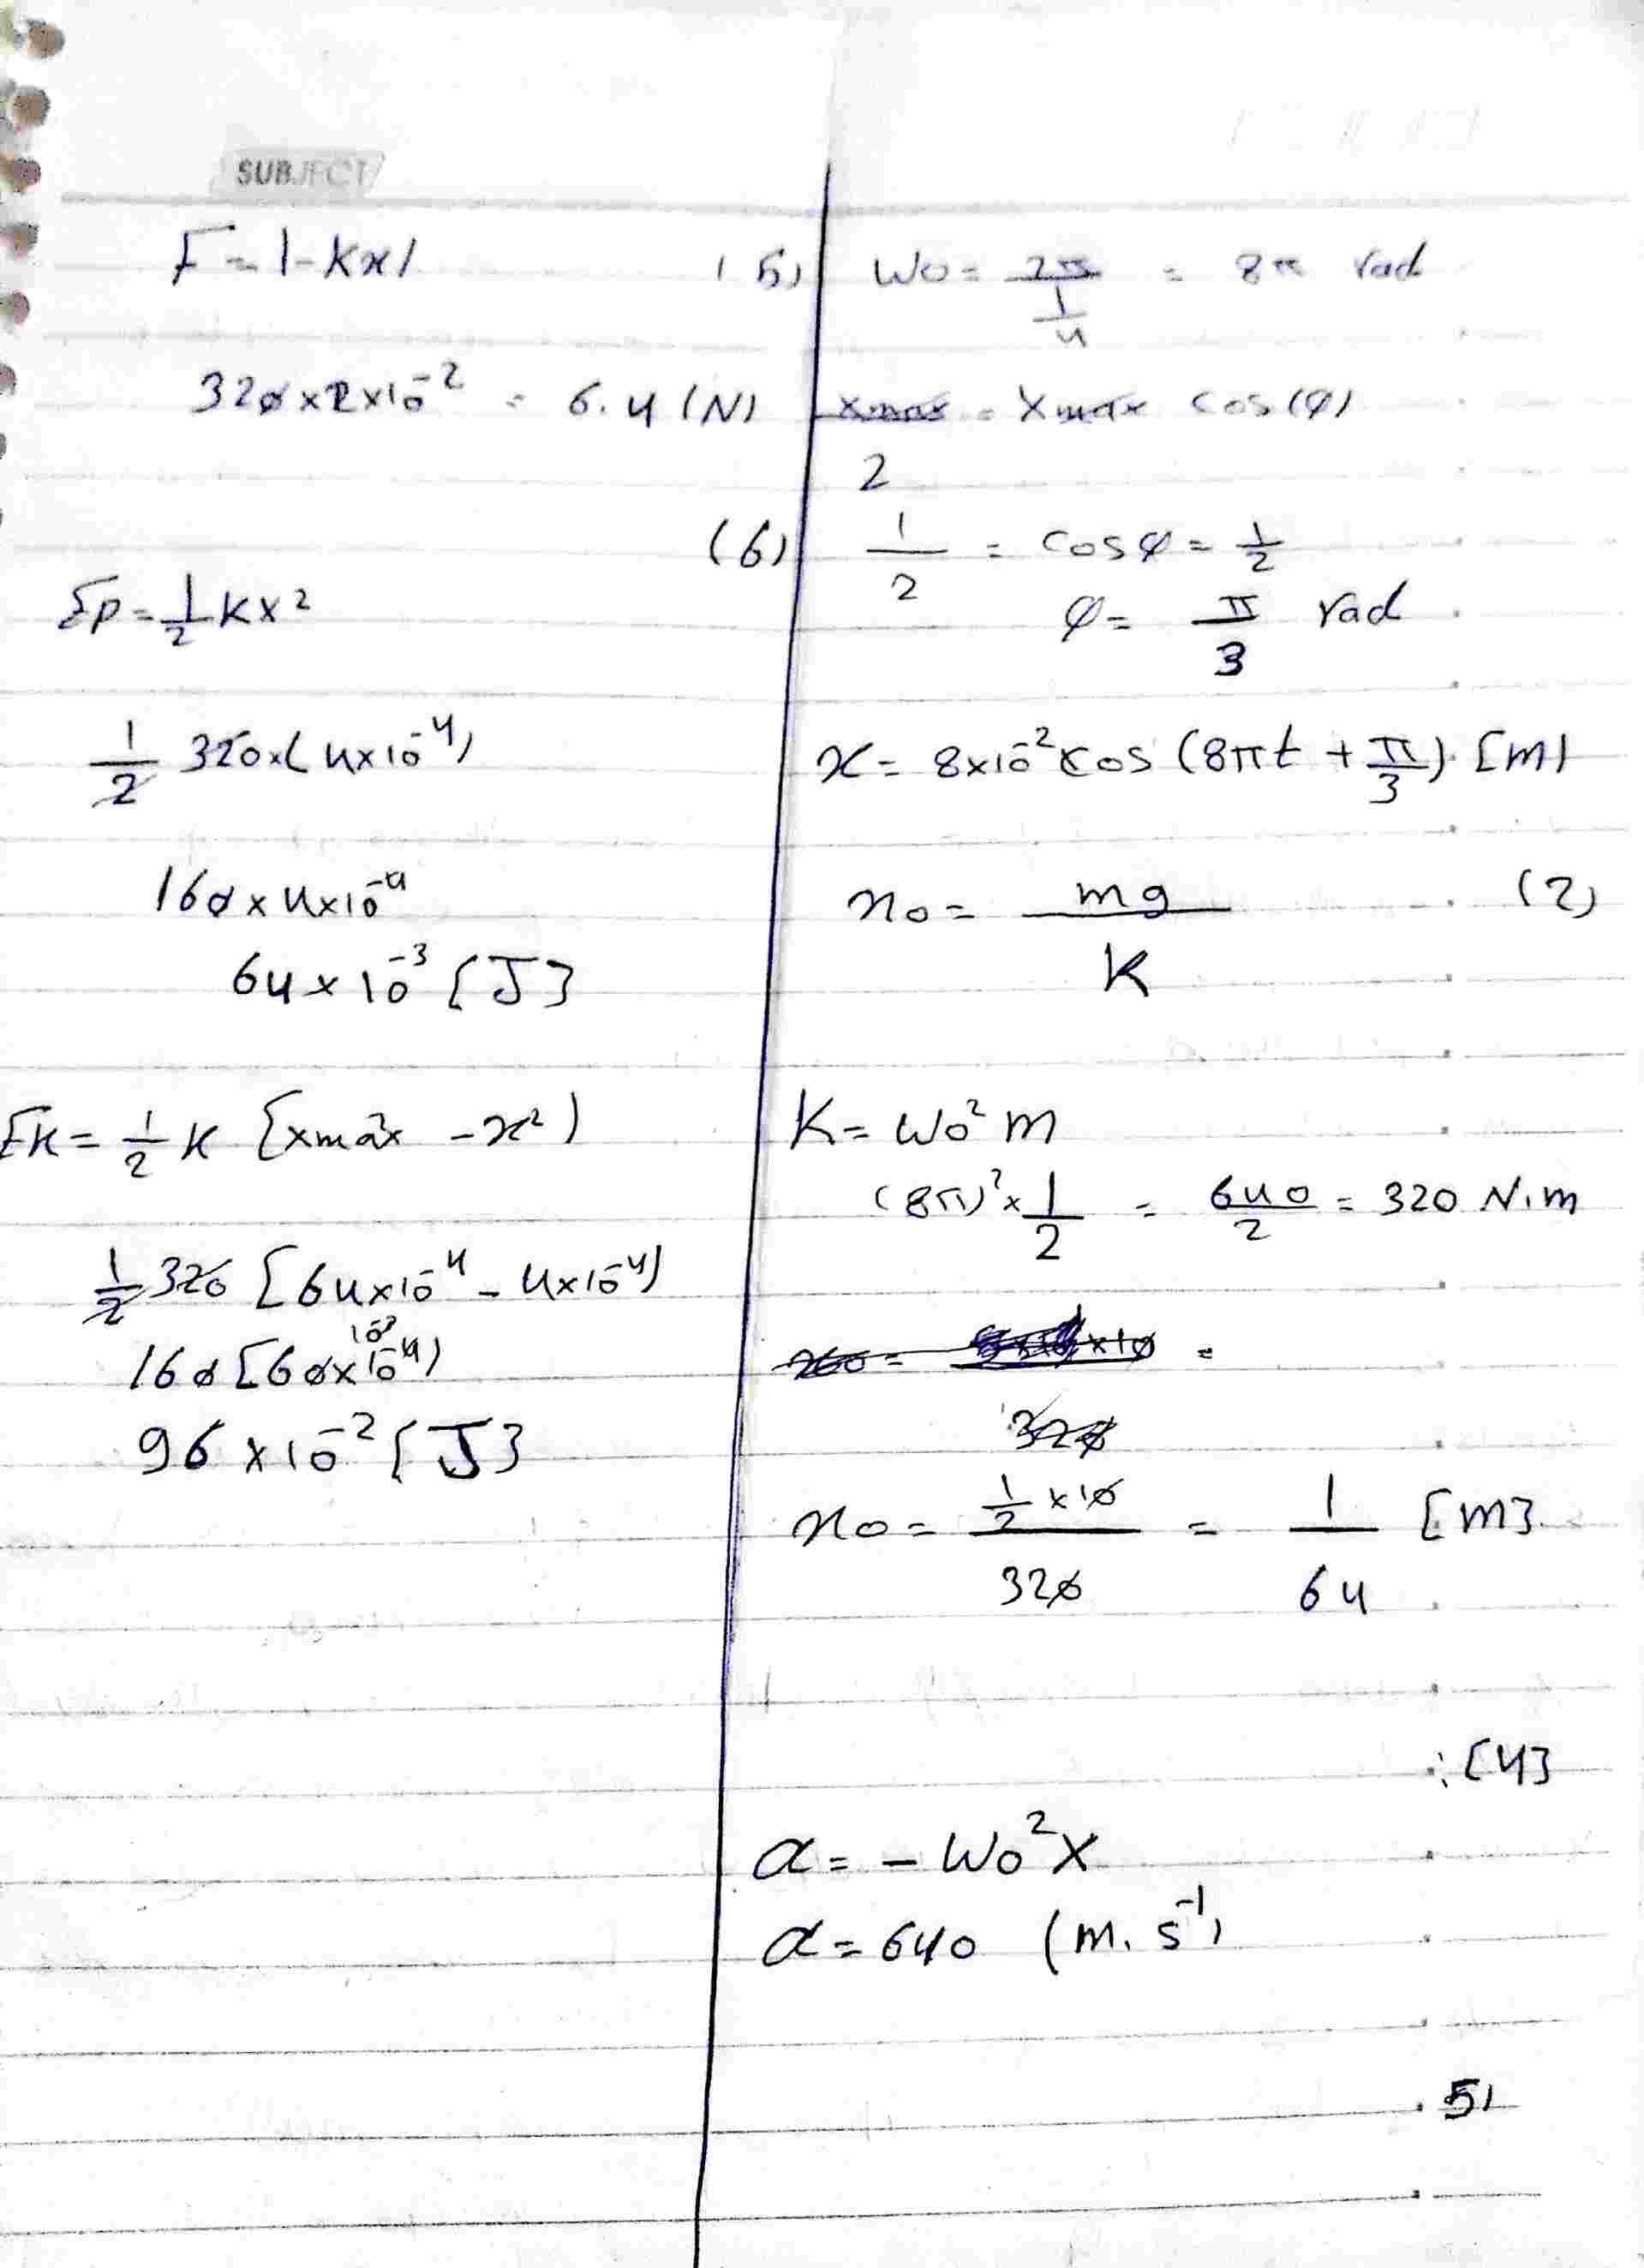 SUBJECT
F = |-Kx|
(5)
320×2×10^-2 = 6.4 (N)
(6)
Ep = 1/2 Kx^2
1/2 320×(4×10^-4)
160×4×10^-4
64×10^-3 [J]
EK = 1/2 K [xmax^2 - x^2]
1/2 320 [64×10^-4 - 4×10^-4)
160 [60×10^-4) 10^-3
96×10^-2 [J]
W0 = 2π / 1/4 = 8π rad
xmax / 2 = Xmax cos(φ)
1/2 = cosφ = 1/2
φ = π/3 rad
x = 8×10^-2 cos (8πt + π/3) [m]
x0 = mg / K (2)
K = W0^2 m
(8π)^2 × 1/2 = 640/2 = 320 N.m
x0 = ×10 / 320 =
x0 = 1/2 ×10 / 320 = 1/64 [m]
[4]
a = - W0^2 X
a = 640 (m.s^-1)
5)